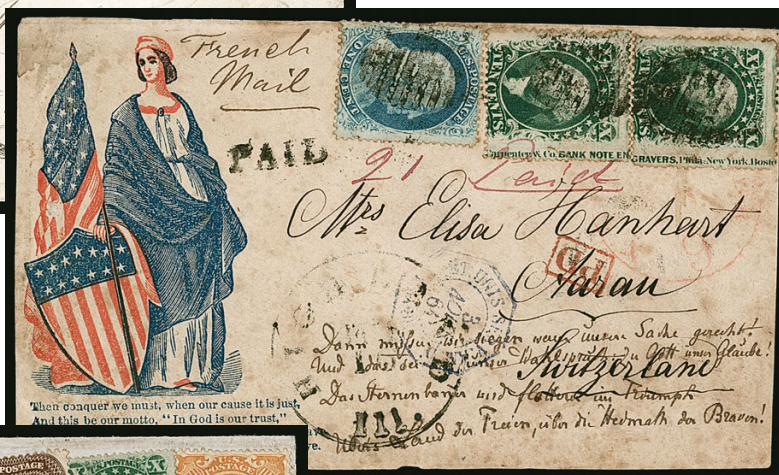 French
Mail
U.S. POSTAGE
ONE CENT
X U.S. POSTAGE X
TEN CENTS
X X
PAID
Carpenter & Co. BANK NOTE ENGRAVERS, Phila. New York, Bosto
21 Paid
Mrs Elisa Hanhart
PD
Aarau
Switzerland
Dann müssen wir siegen wenn unsere Sache gerecht!
Und dass sei unser Wahlspruch: zu Gott unser Glaube!
Das Sternenbanner wird flattern im Triumph
Übers Land der Freien, über die Heimath der Braven!
Then conquer we must, when our cause it is just,
And this be our motto, "In God is our trust,"
ve.
ILL.
POSTAGE
POSTAGE X